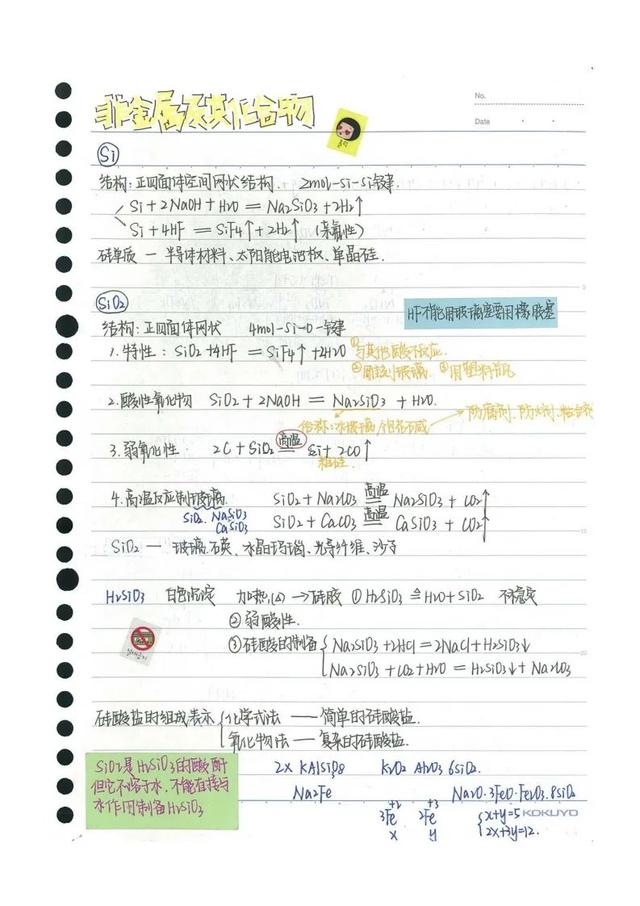 No.
Date
非金属及其化合物
Si
结构:正四面体空间网状结构. 2mol-Si-Si-键
Si+2NaOH+H₂O=Na₂SiO₃+2H₂↑
Si+4HF=SiF₄↑+2H₂↑ (亲氟性)
硅单质—半导体材料、太阳能电池板、单晶硅.
SiO₂
HF不能用玻璃塞要用橡胶塞
结构:正四面体网状 4mol-Si-O-键
1.特性:SiO₂+4HF=SiF₄↑+2H₂O ①与其他酸不反应.
②雕刻玻璃 ③用塑料瓶
2.酸性氧化物 SiO₂+2NaOH=Na₂SiO₃+H₂O.
俗称:水玻璃 →防腐剂、防火剂、粘合剂
3.弱氧化性: 2C+SiO₂ 高温 Si+2CO↑
粗硅
4.高温反应制玻璃. SiO₂+Na₂CO₃ 高温 Na₂SiO₃+CO₂↑
SiO₂. Na₂SiO₃
CaSiO₃
SiO₂+CaCO₃ 高温 CaSiO₃+CO₂↑
SiO₂—玻璃、石英、水晶玛瑙、光导纤维、沙子
H₂SiO₃ 白色沉淀 加热(△)→硅胶 ①H₂SiO₃≜H₂O+SiO₂ 不稳定
②弱酸性.
③硅酸的制备
Na₂SiO₃+2HCl=2NaCl+H₂SiO₃↓
Na₂SiO₃+CO₂+H₂O=H₂SiO₃↓+Na₂CO₃
硅酸盐的组成表示
化学式法——简单的硅酸盐.
氧化物法——复杂的硅酸盐.
SiO₂是H₂SiO₃的酸酐
但它不溶于水,不能直接与
水作用制备H₂SiO₃
2x KAlSi₃O₈ K₂O₂ Al₂O₃ 6SiO₂.
Na₂Fe Na₂O·3FeO·Fe₂O₃·8SiO₂
+2 +3
3Fe 2Fe
x y
x+y=5
2x+3y=12.
KOKUYO